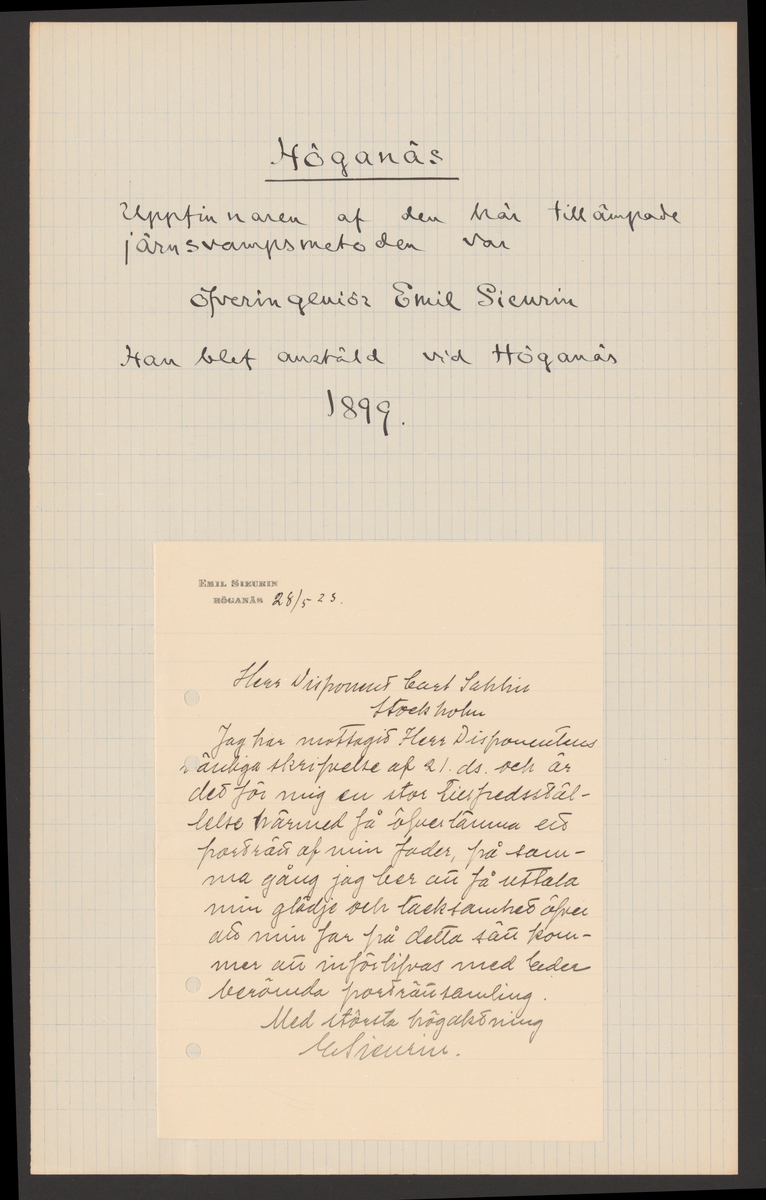 Höganäs
Uppfinnaren af den här tillämpade
järnsvampsmetoden var
öfveringeniör Emil Sieurin
Han blef anstäld vid Höganäs
1899.
EMIL SIEURIN
HÖGANÄS 28/5 23.
Herr Disponent Carl Sahlin
Stockholm
Jag har mottagit Herr Disponentens
vänliga skrifvelse af 21. ds. och är
det för mig en stor tillfredsstäl-
lelse härmed få öfverlämna ett
porträtt af min fader, på sam-
ma gång jag ber att få uttala
min glädje och tacksamhet öfver
att min far på detta sätt kom-
mer att införlifvas med Eder
berömda porträttsamling.
Med största högaktning
E Sieurin.